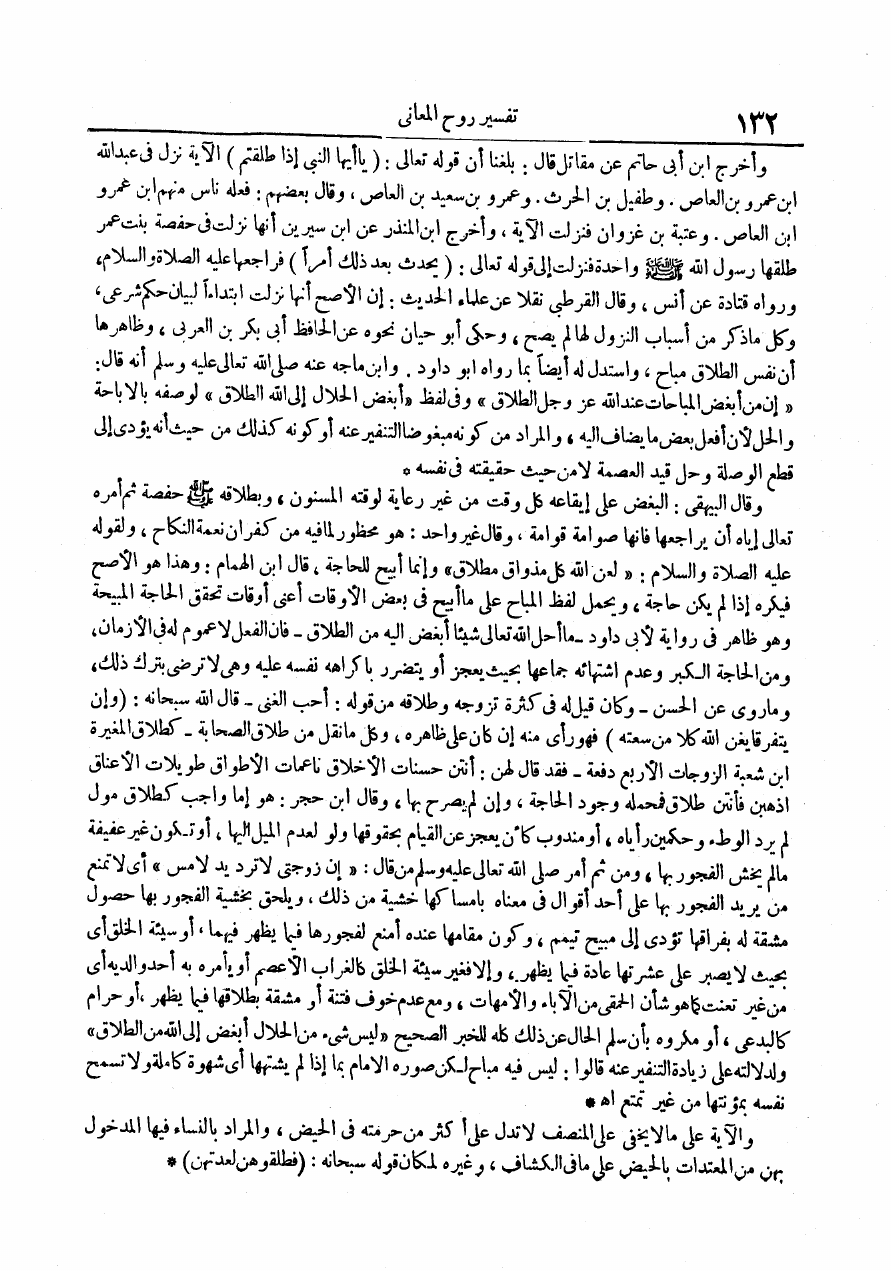 ١٣٢
تفسير روح المعانى
وأخرج ابن أبى حاتم عن مقاتل قال : بلغنا أن قوله تعالى : ( ياأيها النبي إذا طلقتم ) الآية نزل فى عبدالله
ابن عمرو بن العاص . وطفيل بن الحرث . وعمرو بن سعيد بن العاص ، وقال بعضهم : فعله ناس منهم ابن عمرو
ابن العاص . وعتبة بن غزوان فنزلت الآية ، وأخرج ابن المنذر عن ابن سيرين أنها نزلت فى حفصة بنت عمر
طلقها رسول الله ﷺ واحدة فنزلت إلى قوله تعالى : ( يحدث بعد ذلك أمراً ) فراجعها عليه الصلاة والسلام،
ورواه قتادة عن أنس ، وقال القرطبي نقلا عن علماء الحديث : إن الأصح أنها نزلت ابتداءاً لبيان حكم شرعى،
وكل ماذكر من أسباب النزول لها لم يصح ، وحكى أبو حيان نحوه عن الحافظ أبى بكر بن العربى ، وظاهرها
أن نفس الطلاق مباح ، واستدل له أيضاً بما رواه ابو داود . وابن ماجه عنه صلى الله تعالى عليه وسلم أنه قال:
« إن من أبغض المباحات عند الله عز وجل الطلاق » وفى لفظ «أبغض الحلال إلى الله الطلاق » لوصفه بالاباحة
والحل لأن أفعل بعض ما يضاف اليه ، والمراد من كونه مبغوضا التنفير عنه أو كونه كذلك من حيث أنه يؤدى إلى
قطع الوصلة وحل قيد العصمة لا من حيث حقيقته فى نفسه *
وقال البيهقى : البغض على إيقاعه كل وقت من غير رعاية لوقته المسنون ، وبطلاقه ﷺ حفصة ثم أمره
تعالى إياه أن يراجعها فانها صوامة قوامة ، وقال غير واحد : هو محظور لما فيه من كفران نعمة النكاح ، ولقوله
عليه الصلاة والسلام : « لعن الله كل مذواق مطلاق» وإنما أبيح للحاجة ، قال ابن الهمام : وهذا هو الأصح
فيكره إذا لم يكن حاجة ، ويحمل لفظ المباح على ما أبيح فى بعض الأوقات أعنى أوقات تحقق الحاجة المبيحة
وهو ظاهر فى رواية لأبى داود ــ ما أحل الله تعالى شيئا أبغض اليه من الطلاق ــ فان الفعل لا عموم له فى الأزمان،
ومن الحاجة الكبر وعدم اشتهائه جماعها بحيث يعجز أو يتضرر باكراهه نفسه عليه وهى لا ترضى بترك ذلك،
وماروى عن الحسن ــ وكان قيل له فى كثرة تزوجه وطلاقه من قوله : أحب الغنى ــ قال الله سبحانه : (وإن
يتفرقا يغن الله كلا من سعته ) فهو رأى منه إن كان على ظاهره ، وكل مانقل من طلاق الصحابة ــ كطلاق المغيرة
ابن شعبة الزوجات الأربع دفعة ــ فقد قال لهن : أنتن حسنات الأخلاق ناعمات الأطواق طويلات الأعناق
اذهبن فأنتن طلاق فمحمله وجود الحاجة ، وإن لم يصرح بها ، وقال ابن حجر : هو إما واجب كطلاق مول
لم يرد الوطء وحكمين رأياه ، أو مندوب كأن يعجز عن القيام بحقوقها ولو لعدم الميل اليها ، أو تكون غير عفيفة
مالم يخش الفجور بها ، ومن ثم أمر صلى الله تعالى عليه وسلم من قال : « إن زوجتى لاترد يد لامس » أى لا تمنع
من يريد الفجور بها على أحد أقوال فى معناه بامساكها خشية من ذلك ، ويلحق بخشية الفجور بها حصول
مشقة له بفراقها تؤدى إلى مبيح تيمم ، وكون مقامها عنده أمنع لفجورها فيما يظهر فيهما ، أو سيئة الخلق أى
بحيث لا يصبر على عشرتها عادة فيما يظهر ، وإلا فغير سيئة الخلق كالغراب الأعصم أو يأمره به أحد والديه أى
من غير تعنت كما هو شأن الحمقى من الآباء والأمهات ، ومع عدم خوف فتنة أو مشقة بطلاقها فيما يظهر ،أو حرام
كالبدعى ، أو مكروه بأن سلم الحال عن ذلك كله للخبر الصحيح «ليس شىء من الحلال أبغض إلى الله من الطلاق»
ولدلالته على زيادة التنفير عنه قالوا : ليس فيه مباح لكن صوره الامام بما إذا لم يشتهها أى شهوة كاملة ولا تسمح
نفسه بمؤنتها من غير تمتع اه *
والآية على ما لا يخفى على المنصف لا تدل على أكثر من حرمته فى الحيض ، والمراد بالنساء فيها المدخول
بهن من المعتدات بالحيض على ما فى الكشاف ، وغيره لمكان قوله سبحانه : (فطلقوهن لعدتهن) *